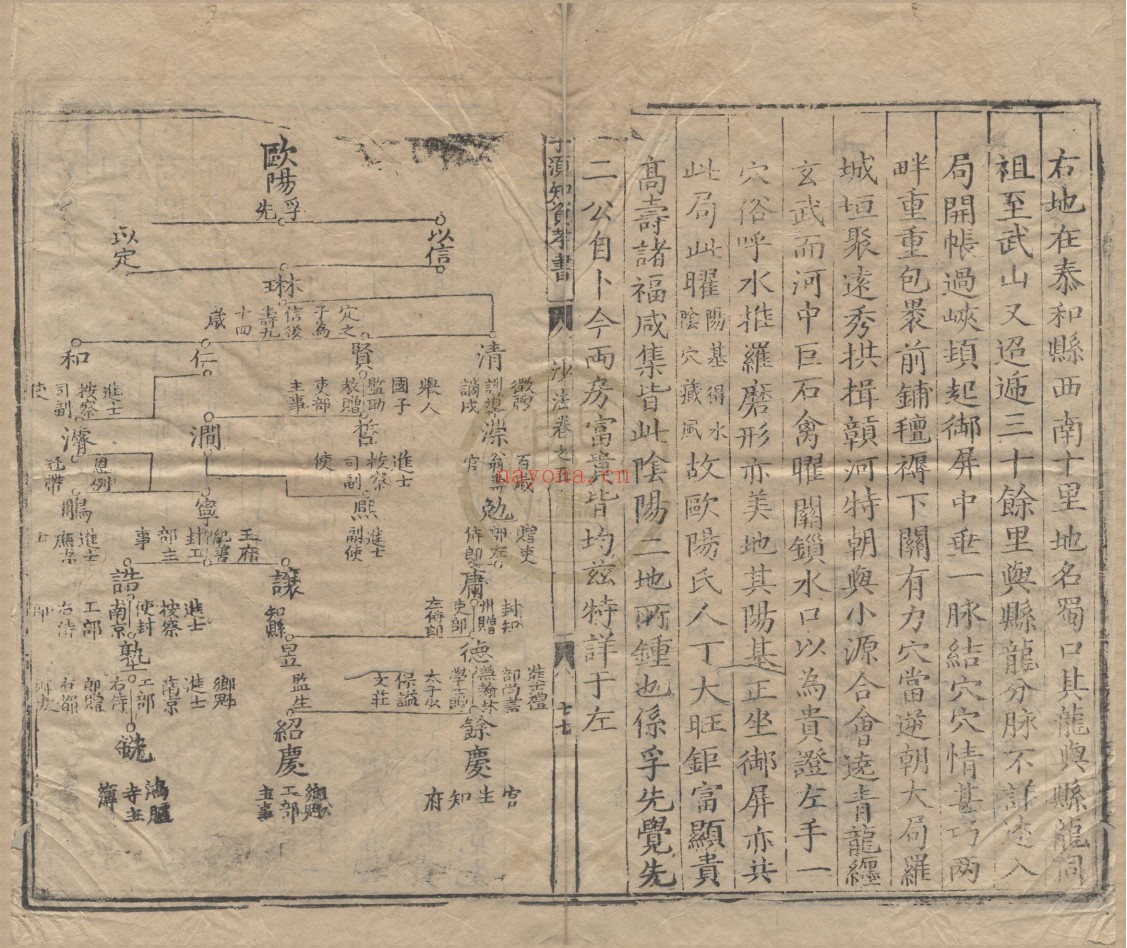 右地在泰和縣西南十里地名蜀口其龍與縣龍同
祖至武山又迢遞三十餘里與縣龍分脉不詳述入
局開帳過峽頓起御屏中垂一脉結穴穴情甚巧两
畔重重包裹前鋪氊褥下關有力穴當逆朝大局羅
城垣聚遠秀拱揖贑河特朝與小源合會遶青龍纏
玄武而河中巨石禽曜關鎖水口以為貴證左手一
穴俗呼水推羅磨形亦美地其陽基正坐御屏亦共
此局此曜陽基得水陰穴藏風故歐陽氏人丁大旺鉅富顯貴
高壽諸福咸集皆此陰陽二地所鍾也係孚先覺先
二公自卜今两房富貴皆均兹特詳于左
子須知資孝書
八
沙法卷之五
八
七七
歐陽孚先
以信
以定
琳
定之
子為
信後
壽九
十四
歲
清
徵聘
訓導
謫戍
賢
舉人
國子
監助
教贈
吏部
主事
仁
和
進士
按察
司副
使
深
百歲
翁壽
官
哲
進士
按察
司副
使
澗
濬
恩例
冠帶
勉
贈吏
部左
侍郎
熙
進士
副使
寧
王府
紀善
封工
部主
事
鵬
進士
庸
封知
州贈
吏部
左侍郎
讓
知縣
誥
進士
按察
使封
南京
工部
右侍
郎
德
進士禮
部尚書
太子少
保謚
文莊
昱
監生
塾
鄉魁
進士
南京
工部
右侍
郎贈
右都
餘慶
官
生
知
府
紹慶
鄉魁
工部
主事
鴻臚
寺主
簿
nayona.cn